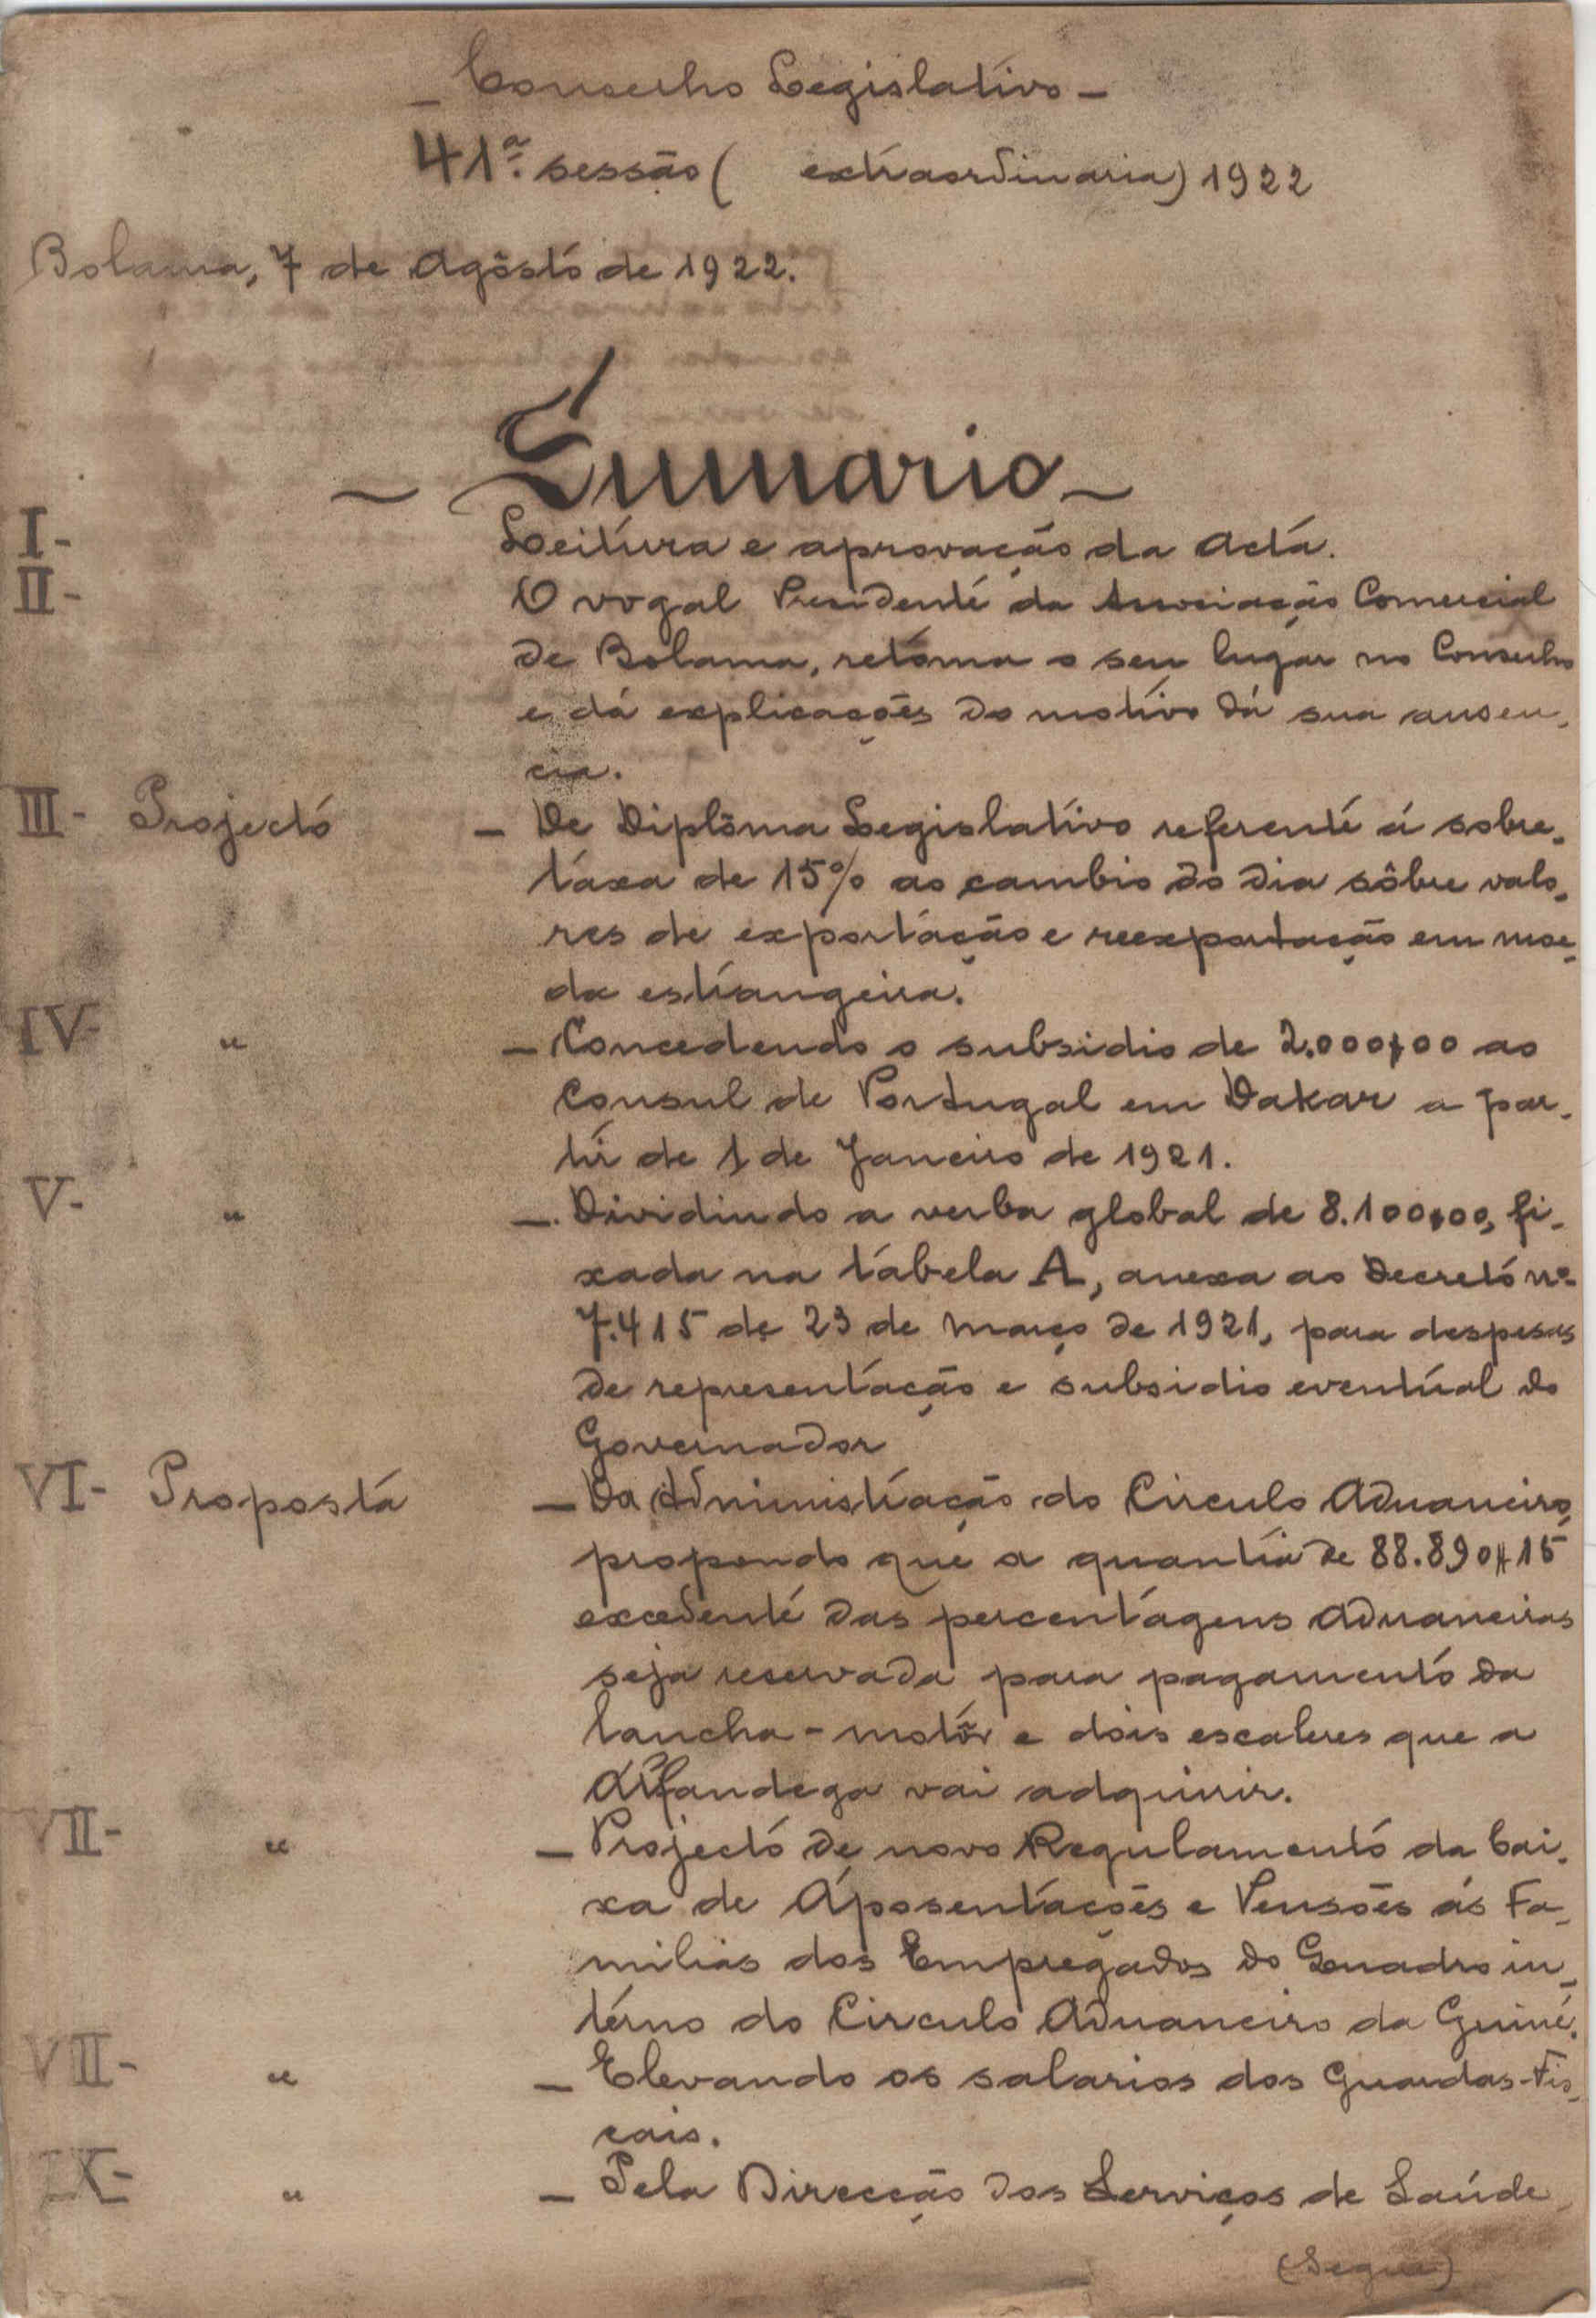 - Conselho Legislativo -
41ª. sessão ( extraordinaria) 1922
Bolama, 7 de Agôsto de 1922.
- Sumario -
I- Leitura e aprovação da acta.
II- O vogal Presidente da Associação Comercial
de Bolama, retoma o seu lugar no Conselho
e dá explicações do motivo da sua ausen-
cia.
III- Projecto - De Diplôma Legislativo referente á sobre-
taxa de 15% ao cambio do dia sôbre valo-
res de exportação e reexportação em moe-
da estrangeira.
IV- " - Concedendo o subsidio de 2.000$00 ao
Consul de Portugal em Dakar a par-
tir de 1 de Janeiro de 1921.
V- " - Dividindo a verba global de 8.100$00, fi-
xada na tabela A, anexa ao Decreto nº
7.415 de 23 de março de 1921, para despesas
de representação e subsidio eventual do
Governador
VI- Proposta - Da Administração do Circulo Aduaneiro,
propondo que a quantia de 88.890$15
excedente das percentagens aduaneiras
seja reservada para pagamento da
lancha-motôr e dois escaleres que a
Alfandega vai adquirir.
VII- " - Projecto de novo Regulamento da Cai-
xa de Aposentações e Pensões ás Fa-
milias dos Empregados do Quadro in-
terno do Circulo Aduaneiro da Guiné.
VIII- " - Elevando os salarios dos Guardas-Fis-
cais.
IX- " - Pela Direcção dos Serviços de Saúde,
(Segue)